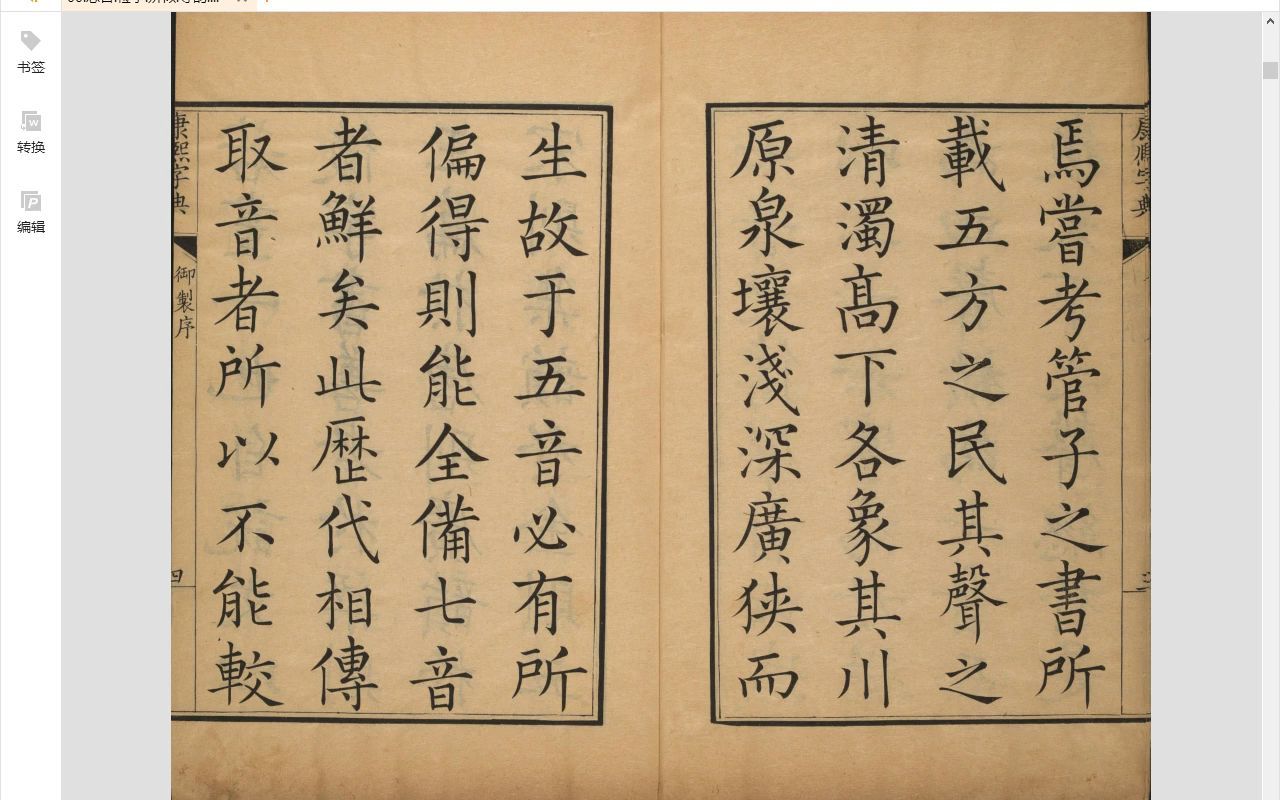 书签
转换
编辑
焉嘗考管子之書所
載五方之民其聲之
清濁高下各象其川
原泉壤淺深廣狹而
生故于五音必有所
偏得則能全備七音
者鮮矣此歷代相傳
取音者所以不能較
康熙字典
御製序
四
康熙字典